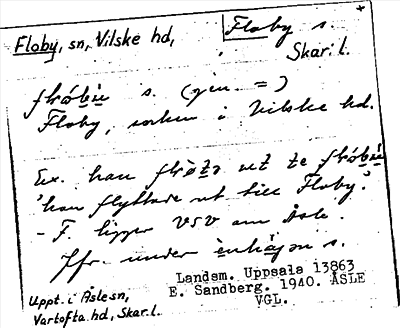 Floby, sn, Vilske hd,
Floby s.
Skar. l.
s. (gen. =)
Floby, socken i Vilske hd.
Ex. han
'han flyttade ut till Floby.'
- F. ligger VSV om Åsle.
Jfr. under s.
Landsm. Uppsala 13863
E. Sandberg. 1940. ÅSLE
VGL.
Uppt. i Åsle sn,
Vartofta hd, Skar. l.